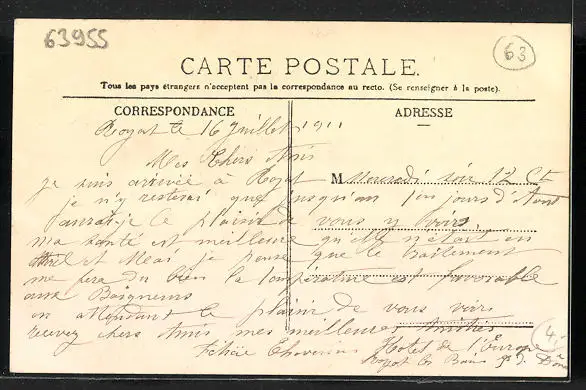 63955
63
CARTE POSTALE.
Tous les pays étrangers n'acceptent pas la correspondance au recto. (Se renseigner à la poste).
CORRESPONDANCE
ADRESSE
Royat le 16 Juillet 1911
Mes Chers Amis
M
je suis arrivée à Royat Mercredi soir 12 Ct
je n'y resterai que jusqu'au 1er jours d'Aout
aurai je le plaisir de vous y voir,
ma santé est meilleure qu'elle n'était en
Avril et Mai je pense que le traitement
me fera du bien la température est favorable
aux Baigneurs
en attendant le plaisir de vous voir
recevez chers Amis mes meilleures amitiés
Hotel de l'Europe
Royat les Bains P. de Dôme